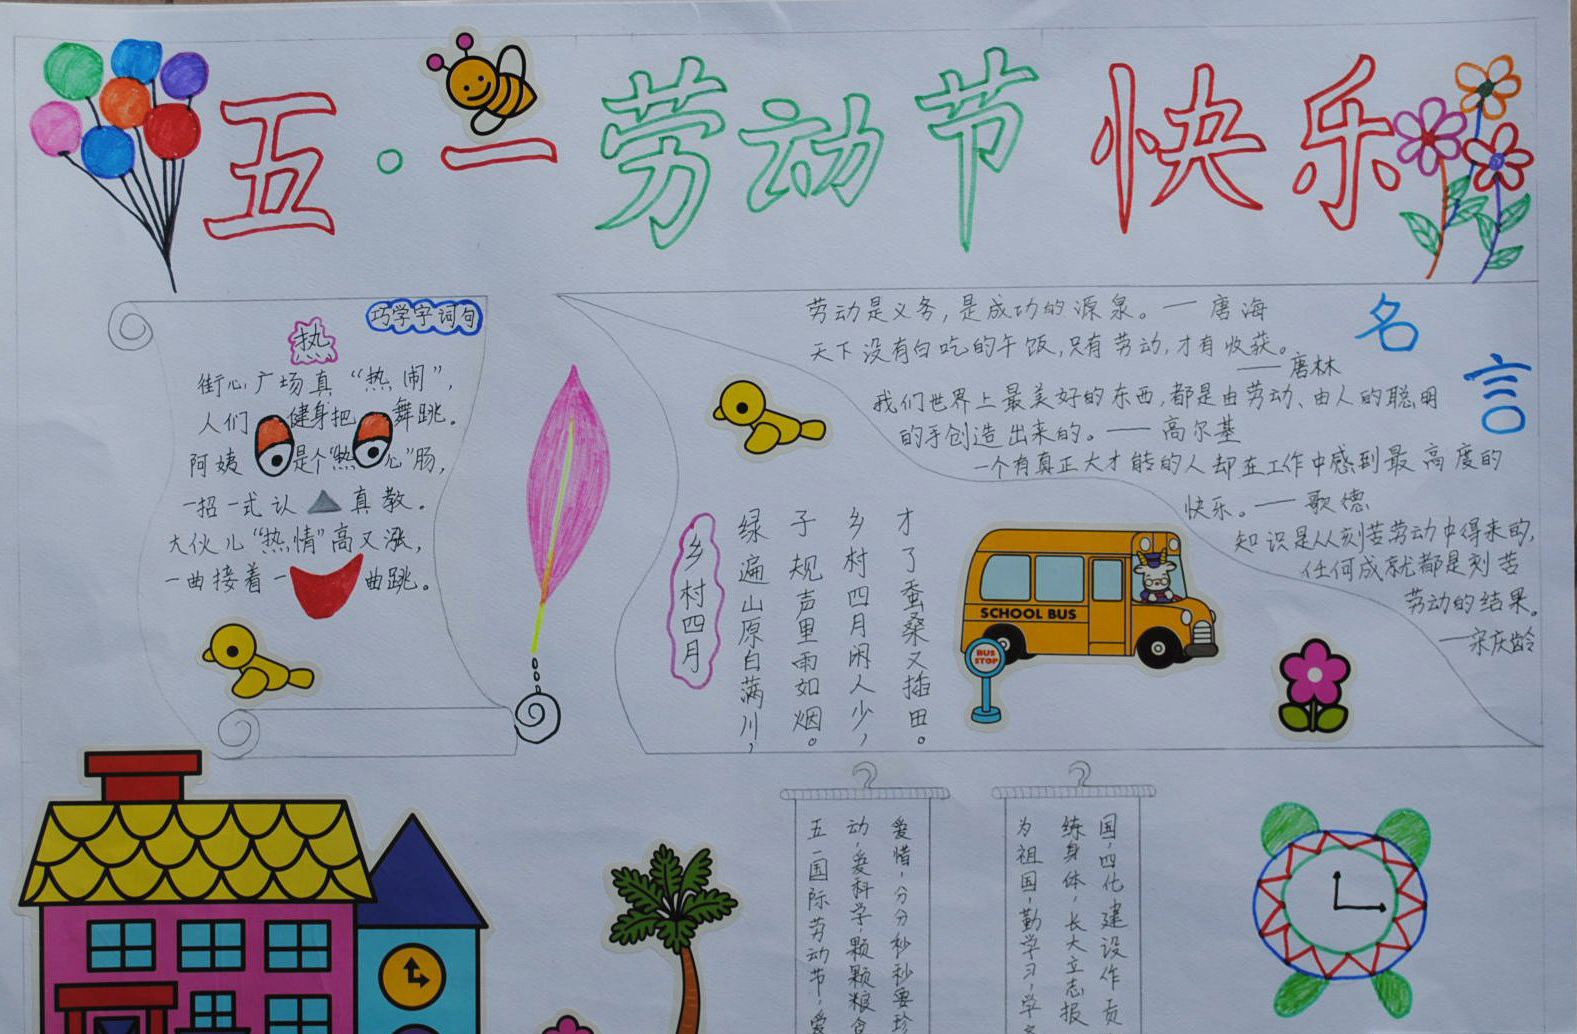 五·一劳动节快乐
巧学字词句
热
街心广场真“热闹”，
人们健身把舞跳。
阿姨是个“热心”肠，
一招一式认真教。
大伙儿“热情”高又涨，
一曲接着一曲跳。
名言
劳动是义务，是成功的源泉。——唐海
天下没有白吃的午饭，只有劳动，才有收获。
——唐林
我们世界上最美好的东西，都是由劳动、由人的聪明
的手创造出来的。——高尔基
一个有真正大才能的人却在工作中感到最高度的
快乐。——歌德
知识是从刻苦劳动中得来的，
任何成就都是刻苦
劳动的结果。
——宋庆龄
乡村四月
绿遍山原白满川，
子规声里雨如烟。
乡村四月闲人少，
才了蚕桑又插田。
SCHOOL BUS
BUS
STOP
五一国际劳动节，爱
动，爱科学，颗颗粮食
爱惜，分分秒秒要珍
为祖国，勤学习，学
练身体，长大立志报
国，四化建设作贡